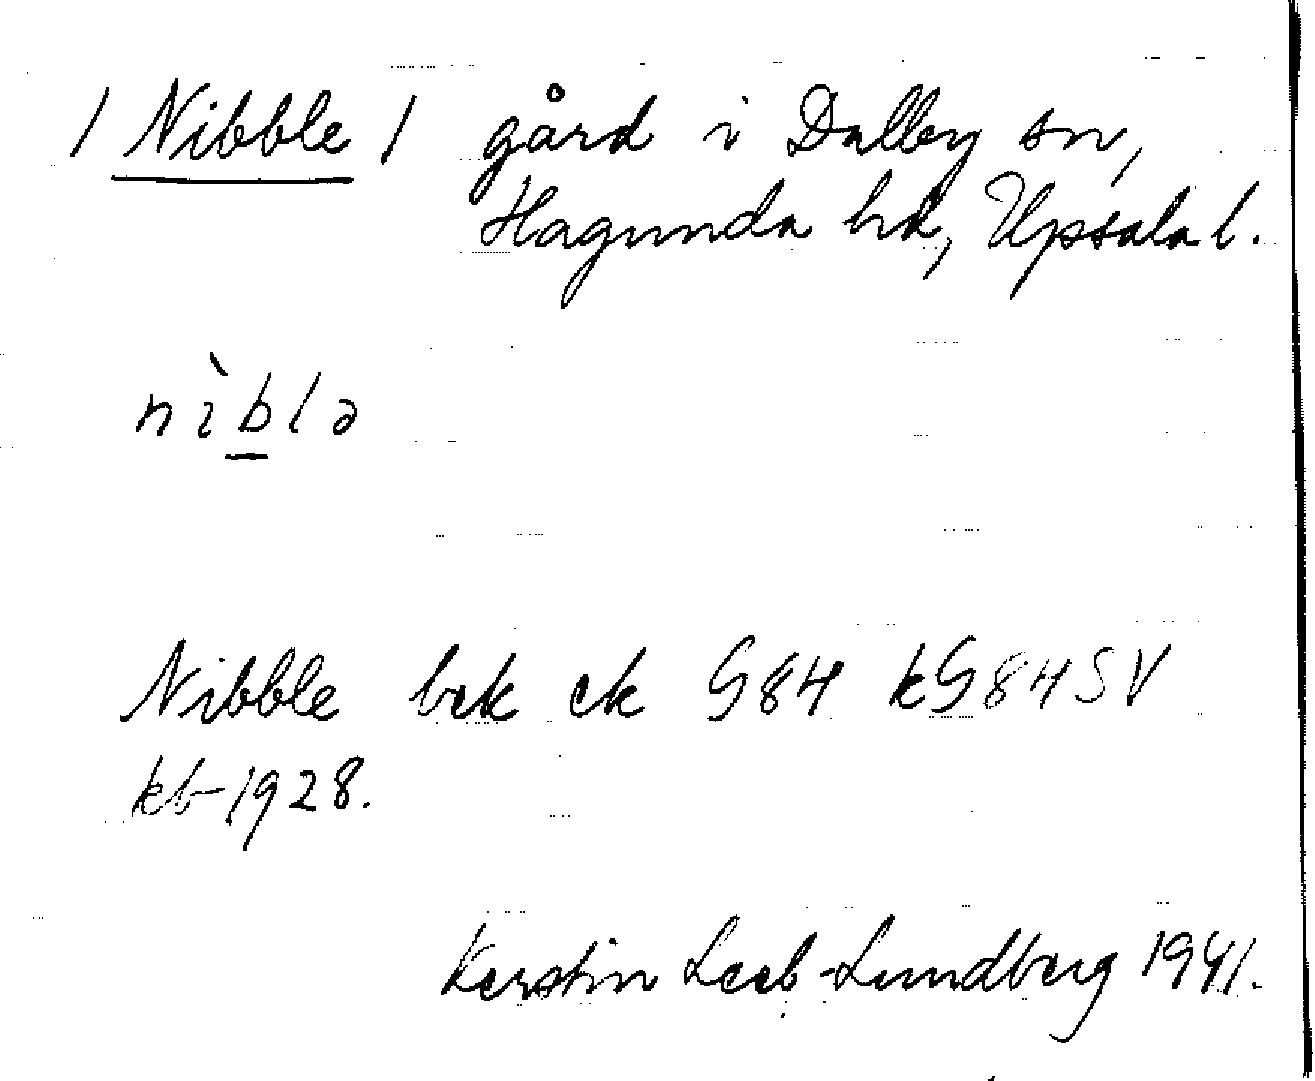 / Nibble / gård i Dalby sn,
Hagunda hd, Upsala l.
nìblə
Nibble bek ek G84 kG84SV
kb 1928.
Kerstin Leeb-Lundberg 1941.